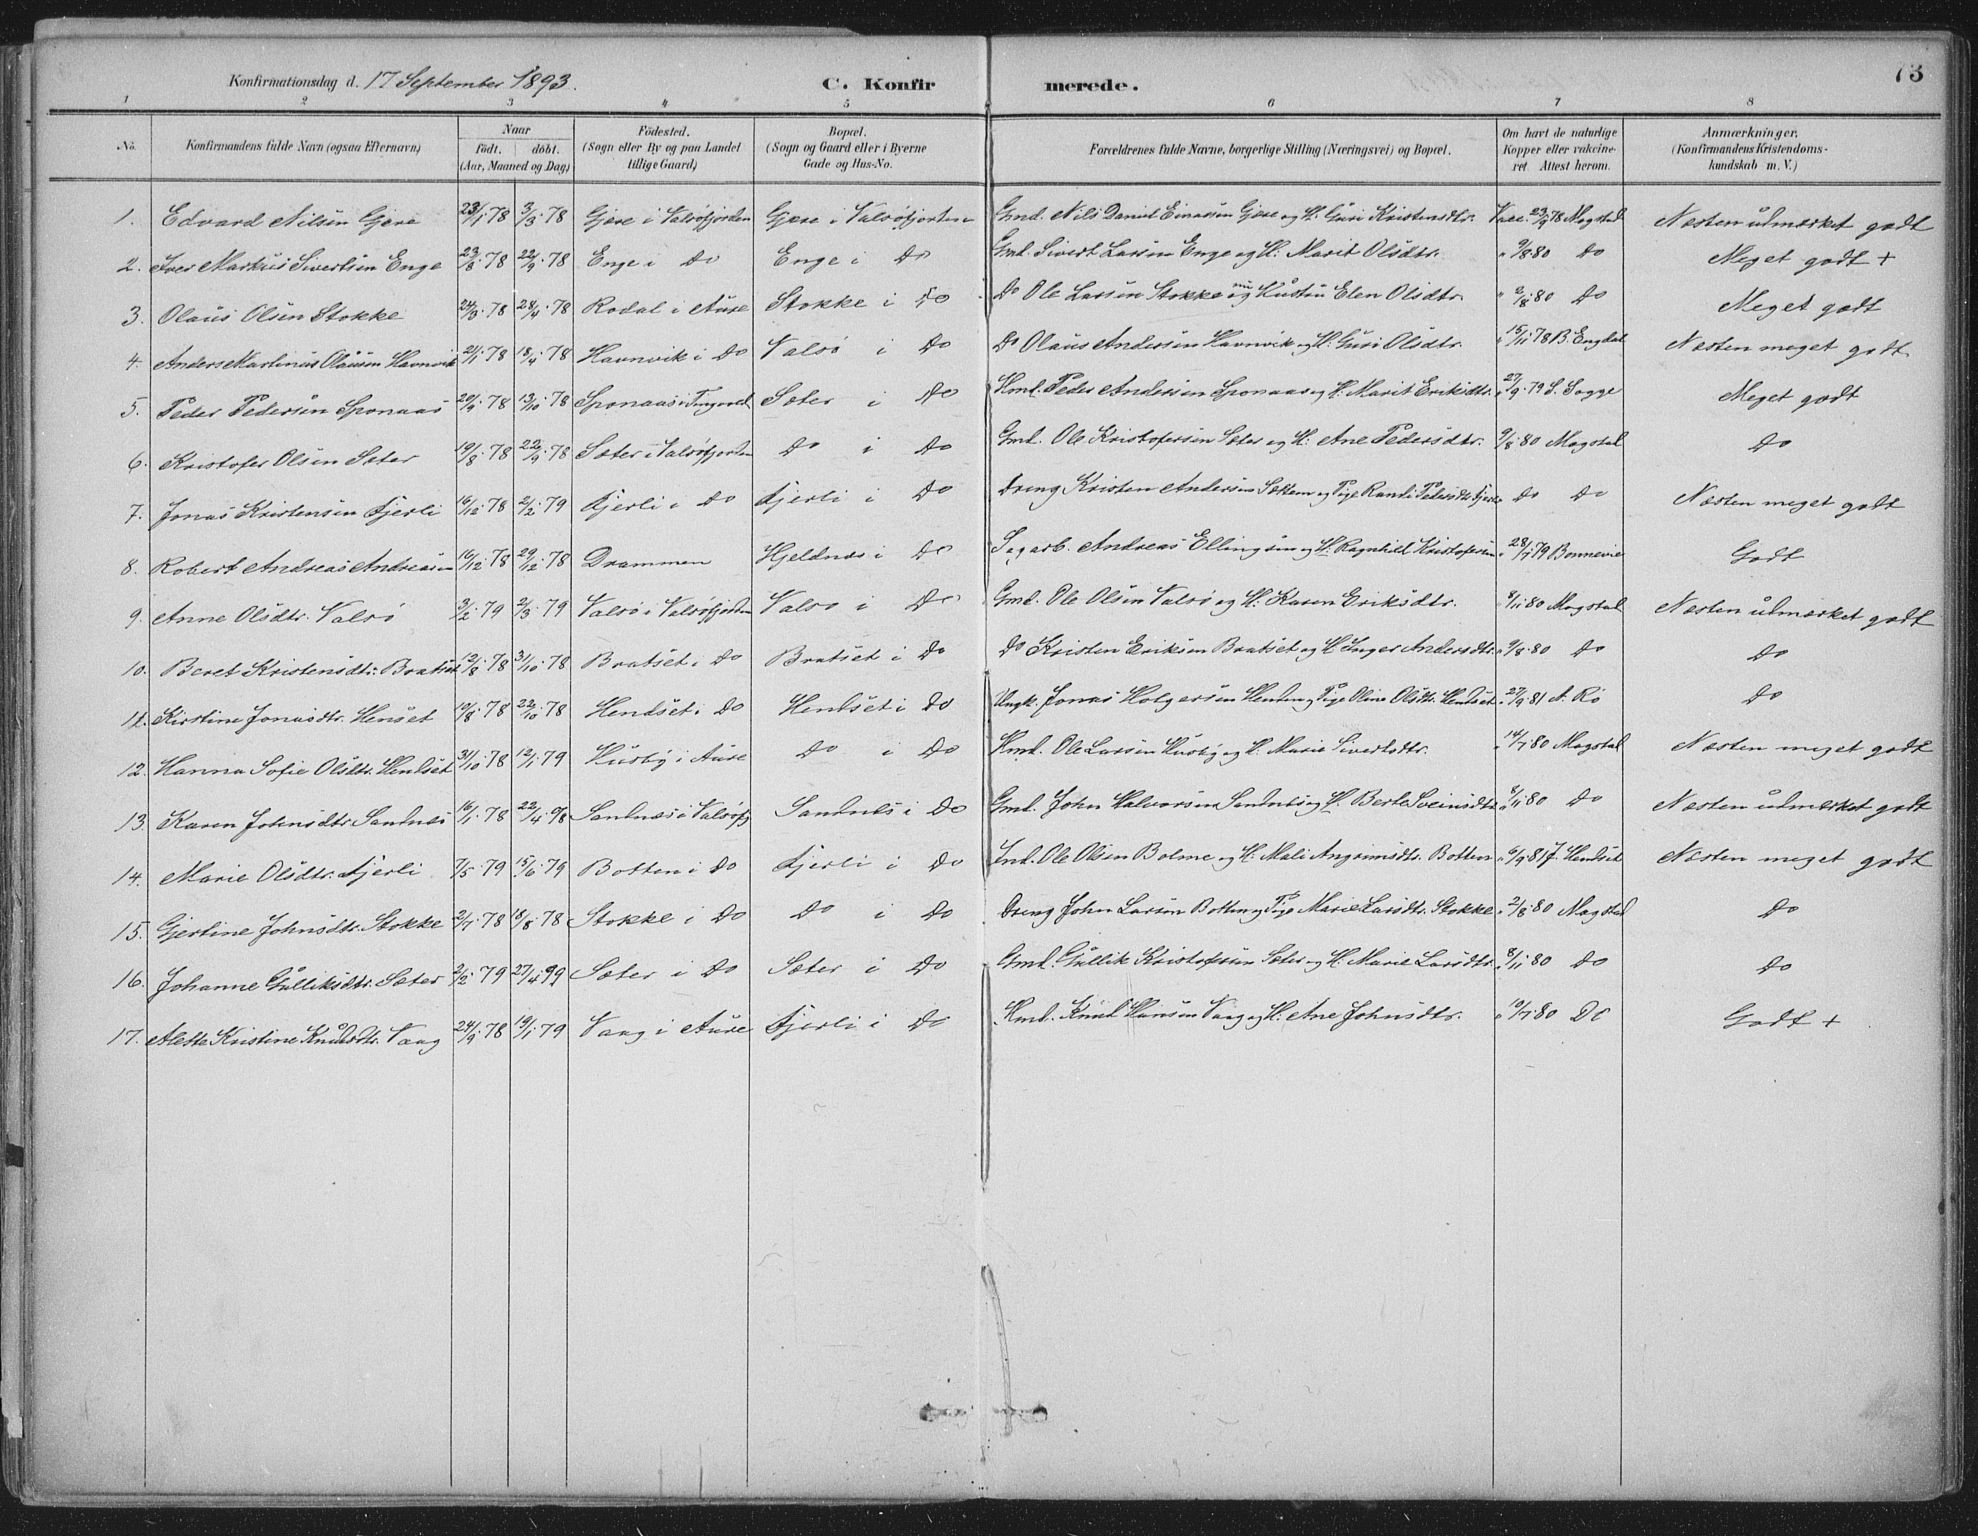 73
Konfirmationsdag d. 17 September 1893. C. Konfirmerede.
1 2 3 4 5 6 7 8
No. Konfirmandens fulde Navn (ogsaa Efternavn) Naar födt. döbt. (Aar, Maaned og Dag) Födested. (Sogn eller By og paa Landet tillige Gaard) Bopæl. (Sogn og Gaard eller i Byerne Gade og Hus-No. Forældrenes fulde Navne, borgerlige Stilling (Næringsvei) og Bopæl. Om havt de naturlige Kopper eller vakcineret. Attest herom. Anmærkninger. (Konfirmandens Kristendomskundskab m. V.)
1. Edvard Nilsen Gjøre 23/1 78 3/3 78 Gjøre i Valsøfjorden Gjøre i Valsøfjorden Gmd. Nils Daniel Einarsen Gjøre og H. Guri Kristensdtr. Vacc. 23/9 78 Mogstad Næsten udmærket godt
2. Iver Markus Sivertsen Enge 23/8 78 22/9 78 Enge i Do Enge i Do Gmd. Sivert Larsen Enge og H. Marit Olsdtr. " 9/8 80 Do Meget godt +
3. Olaus Olsen Stokke 24/3 78 28/4 78 Rodal i Aure Stokke i Do Do Ole Larsen Stokke og Hustru Elen Olsdtr. " 2/8 80 Do Meget godt
4. Anders Martinus Olausen Havnvik 21/1 78 18/4 78 Havnvik i Do Valsø i Do Do Olaus Andersen Havnvik og H. Guri Olsdtr. " 15/11 78 B. Engdal Næsten meget godt
5. Peder Pedersen Sponaas 20/9 78 13/10 78 Sponaas i Tingvold Sæter i Do Hmd. Peder Andersen Sponaas og H. Marit Eriksdtr. " 27/9 79 S. Sogge Meget godt
6. Kristofer Olsen Sæter 19/8 78 22/9 78 Sæter i Valsøfjorden Do i Do Gmd. Ole Kristofersen Sæter og H. Ane Pedersdtr. 9/8 80 Mogstad Do
7. Jonas Kristensen Fjerli 16/12 78 2/2 79 Fjerli i Do Fjerli i Do Dreng Kristen Andersen Settem og Pige Randi Pedersdtr. Fjerli Do Do Næsten meget godt
8. Robert Andreas Andreasen 16/12 78 29/12 78 Drammen Hjeldnes i Do Sagarb. Andreas Ellingsen og H. Ragnhild Kristofersen " 28/7 79 Bonnevie Godt
9. Anne Olsdtr. Valsø 3/2 79 2/3 79 Valsø i Valsøfjorden Valsø i Do Gmd. Ole Olsen Valsø og H. Karen Eriksdtr. " 8/11 80 Mogstad Næsten udmærket godt
10. Beret Kristensdtr. Bratset 12/8 78 31/10 78 Bratset i Do Bratset i Do Do Kristen Eriksen Bratset og H. Inger Andersdtr. " 9/8 80 Do Do
11. Kirstine Jonasdtr. Henset 10/8 78 22/10 78 Hendset i Do Hendset i Do Ungk. Jonas Holgersen Henden og Pige Oline Olsdtr. Hendset " 27/9 81 A. Rö Do
12. Hanna Sofie Olsdtr. Hendset 31/10 78 12/1 79 Husby i Aure Do i Do Hmd. Ole Larsen Husby og H. Marie Sivertsdtr. " 14/7 80 Mogstad Næsten meget godt
13. Karen Johnsdtr. Sandnes 16/1 78 22/4 78 Sandnes i Valsøfj Sandnes i Do Gmd. John Halvorsen Sandnes og H. Berte Sveinsdtr. 8/11 80 Do Næsten udmærket godt
14. Marie Olsdtr. Fjerli 7/5 79 15/6 79 Botten i Do Fjerli i Do Ind. Ole Olsen Bolme og H. Mali Angrimsdtr. Botten " 6/9 81 J. Hendset Næsten meget godt
15. Gjertine Johnsdtr. Stokke 2/7 78 18/8 78 Stokke i Do Do i Do Dreng John Larsen Botten og Pige Marie Larsdtr. Stokke " 2/8 80 Mogstad Do
16. Johanne Gulliksdtr. Sæter 2/2 79 27/4 79 Sæter i Do Sæter i Do Gmd. Gullik Kristofersen Sæter og H. Marie Larsdtr. " 8/11 80 Do Do
17. Aletta Kristine Knudsdtr. Vaag 24/9 78 19/1 79 Vaag i Aure Fjerli i Do Hmd. Knud Hansen Vaag og H. Ane Johnsdtr. " 10/7 80 Do Godt +